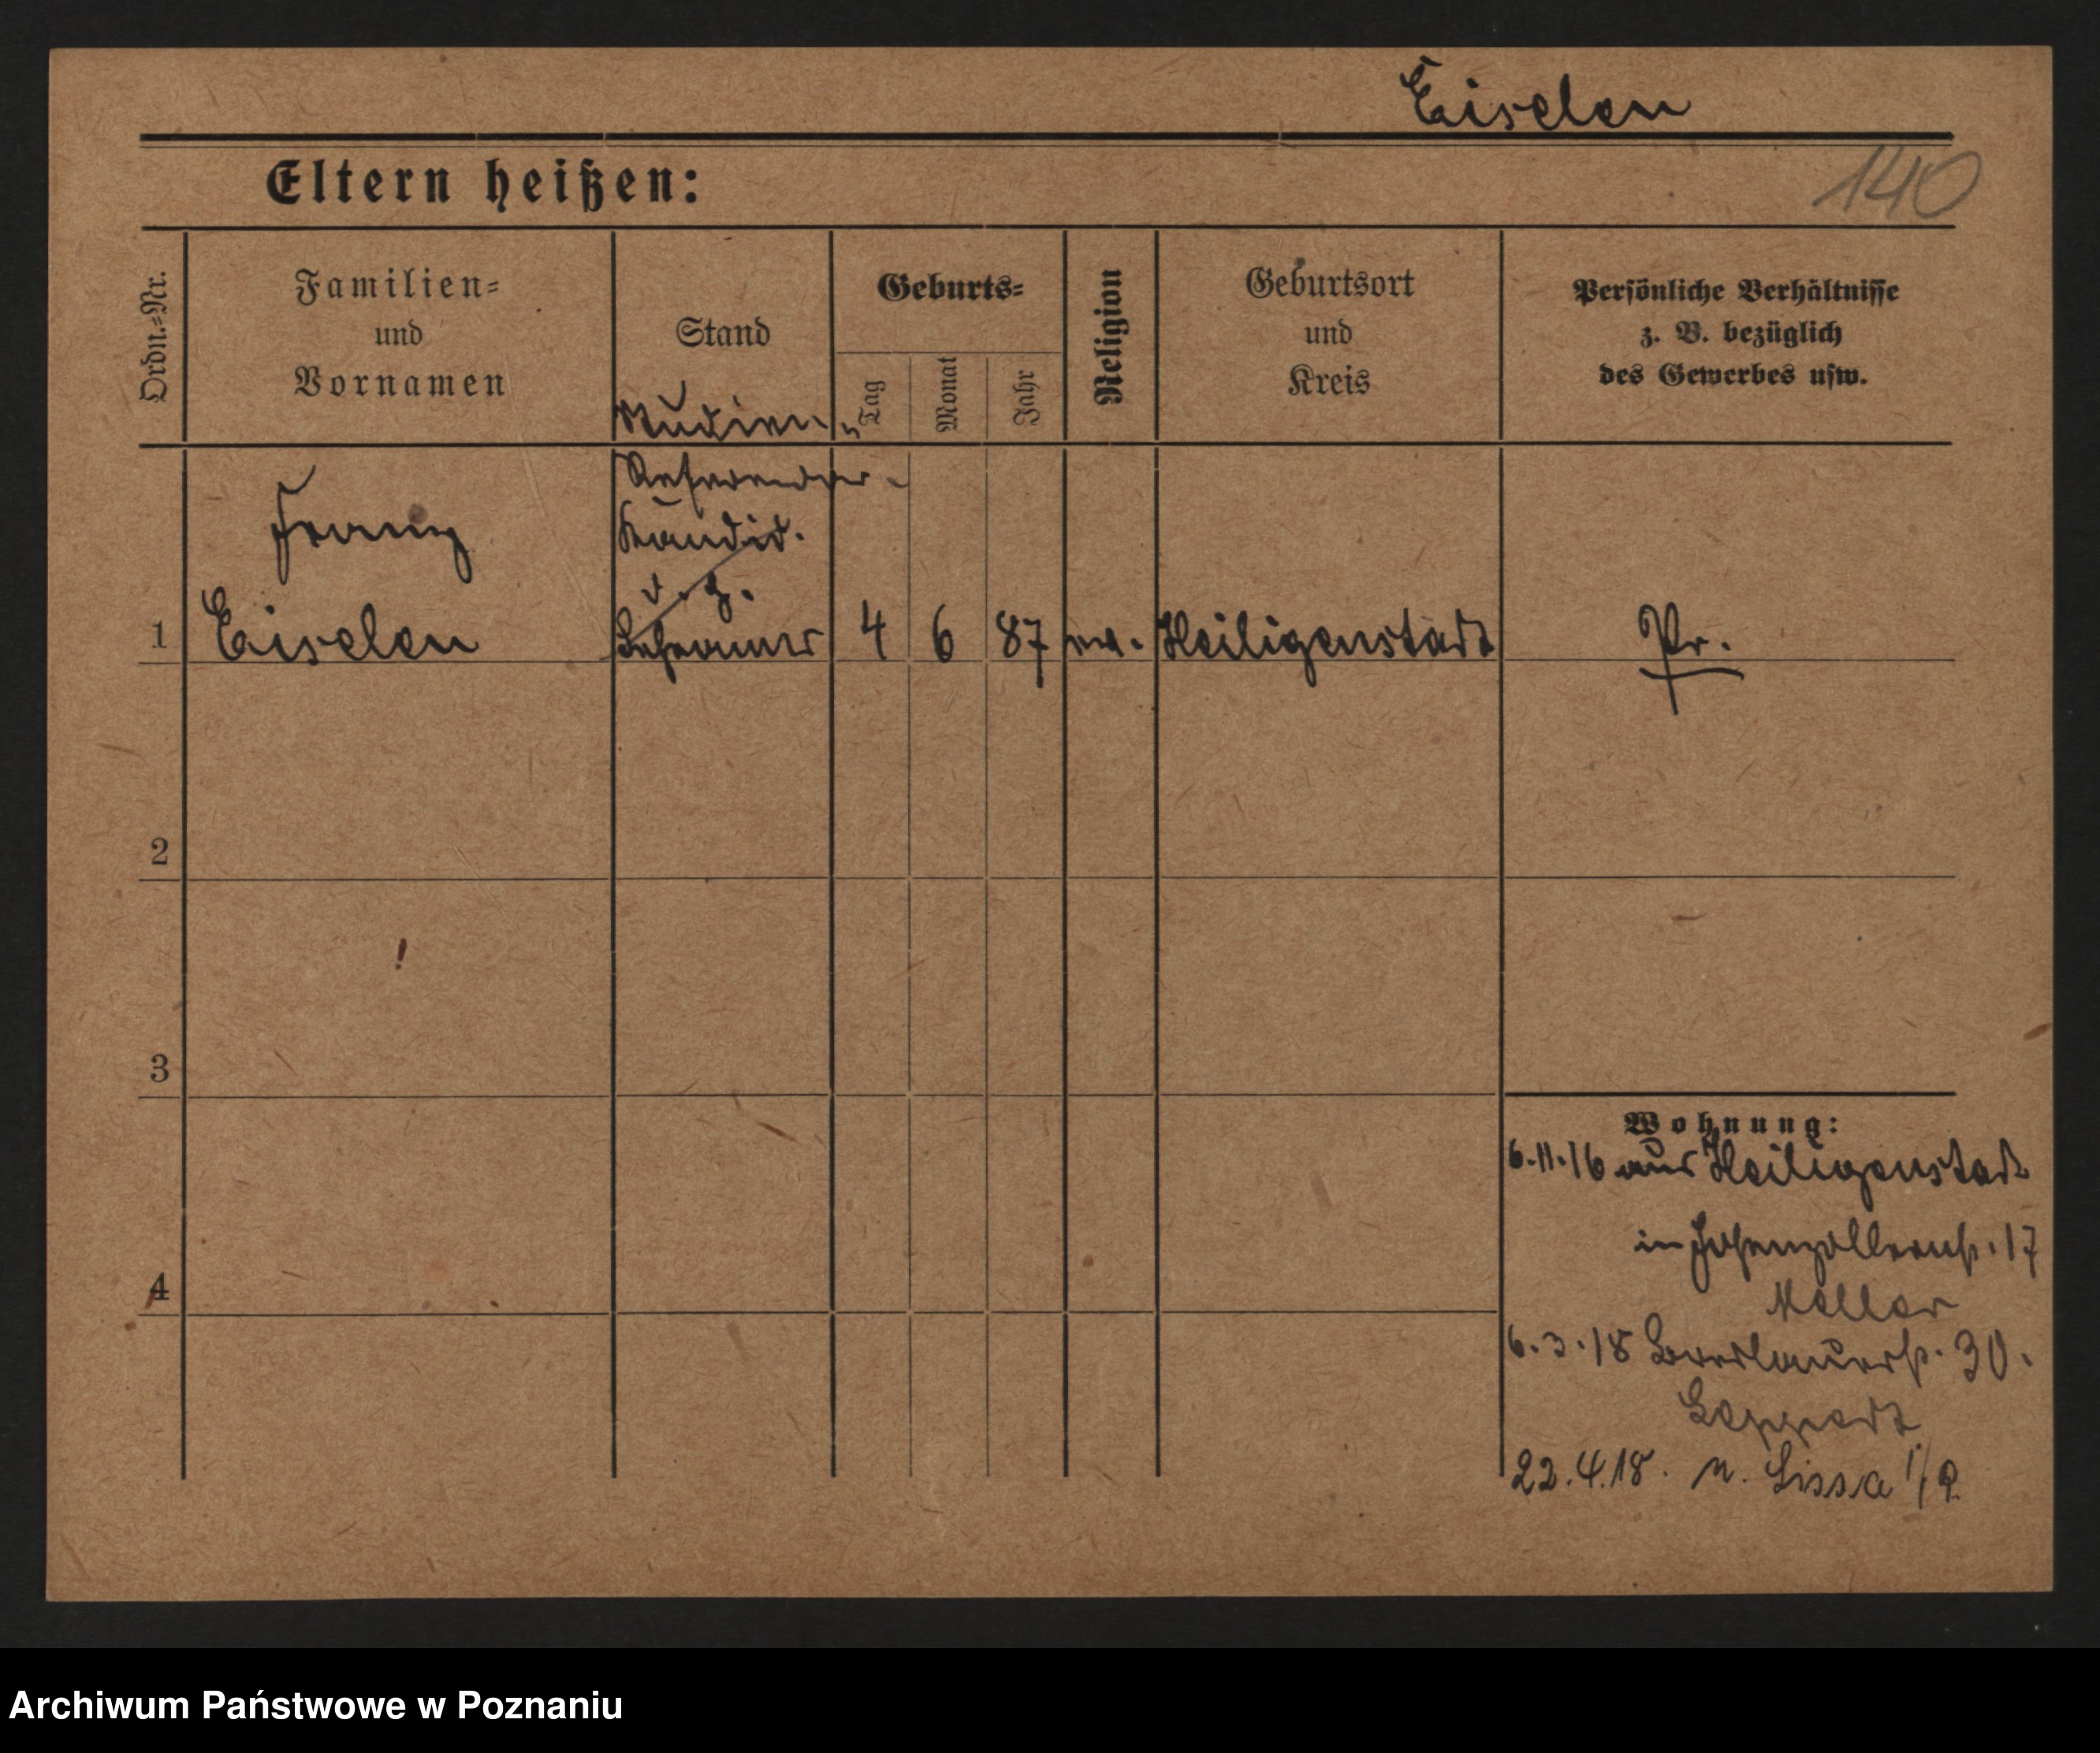 Eiselen
140
Eltern heißen:
Ordn.=Nr.
Familien=
und
Vornamen
Stand
Geburts=
Tag
Monat
Jahr
Religion
Geburtsort
und
Kreis
Persönliche Verhältnisse
z. B. bezüglich
des Gewerbes usw.
Studien-
Referendar
Kandid.
Franz
1 Eiselen 4 6 87 Heiligenstadt Pr.
2
3
4
Wohnung:
6.11.16 aus Heiligenstadt
in Hohenzollernstr. 17
6.3.18 Breslauerstr. 30.
22.4.18. n. Lissa i/P.
Archiwum Państwowe w Poznaniu